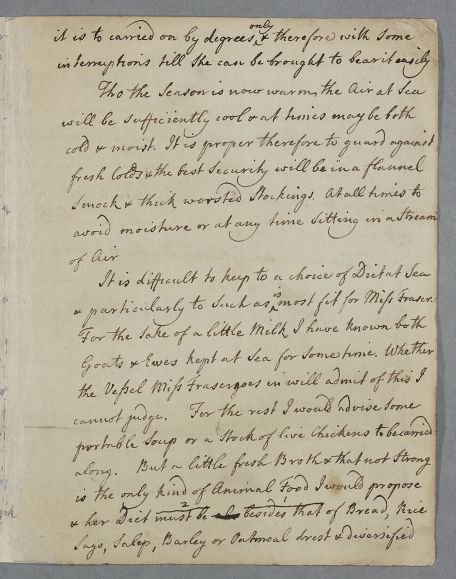 it is to carried on by degrees only & therefore with some
interruptions till she can be brought to bear it easily
Tho the Season is now warm, the Air at Sea
will be sufficiently cool & at times may be both
cold & moist. It is proper therefore to guard against
fresh Colds & the best Security will be in a flannel
Smock & thick worsted Stockings. At all times to
avoid moisture or at any time Sitting in a Stream
of Air
It is difficult to keep to a choice of Diet at Sea
& particularly to such as is most fit for Miss Fraser.
For the sake of a little Milk I have known both
Goats & Ewes kept at Sea for some time. Whether
the Vessel Miss Fraser goes in will admit of this I
cannot judge. For the rest I would advise some
portable Soup or a Stock of live Chickens to be carried
along. But a little fresh Broth & that not Strong
is the only kind of Animal Food I would propose
& her Diet must be besides that of Bread, Rice
Sago, Salep, Barley or Oatmeal drest & diversified